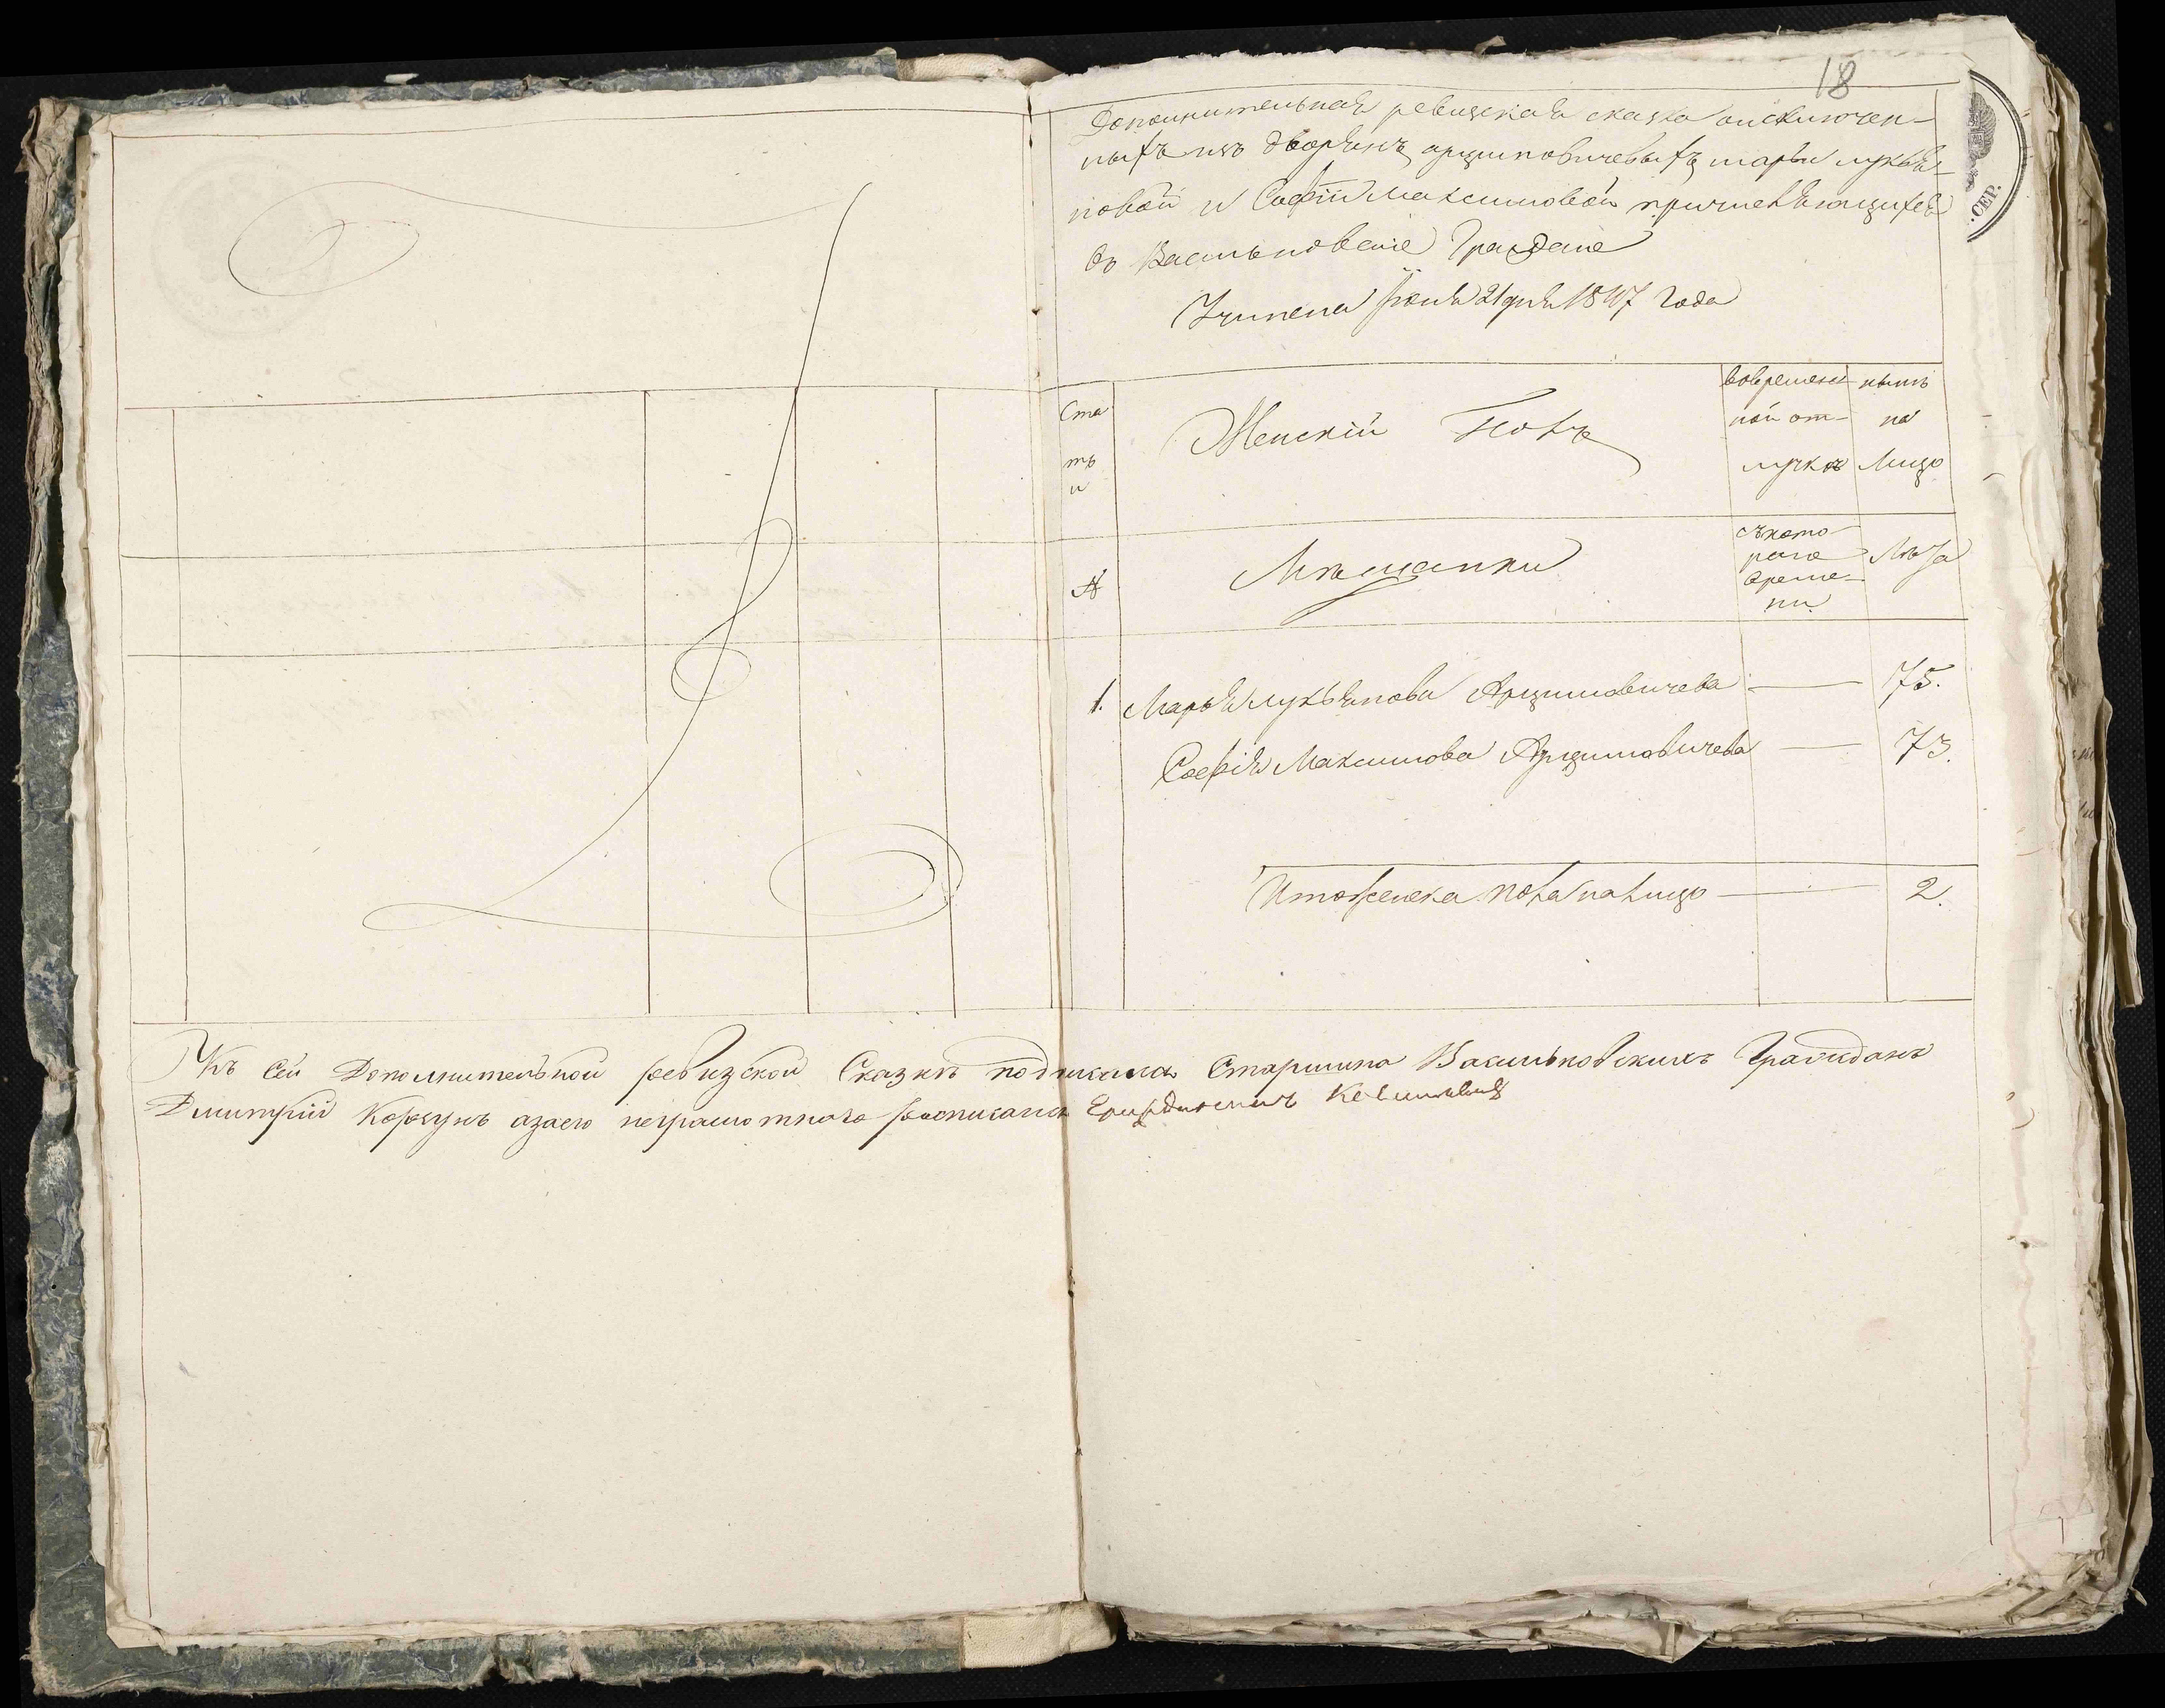 18
Дополнительная ревизская сказка оисключен-
ныхъ изъ дворянъ арцимовичевыхъ марьи лукья-
новой и Софіи Максимовой причисляющихся
въ Васильковскіе Граждане
Учинена Іюня 21 дня 1847 Года
Ста
тьи
Женскій Полъ
вовремен
ной от-
лучкѣ
нынѣ
на
Лицо
№
Мѣщанки
съкото
раго
време-
ни
Лѣта
1. Марья лукьянова Арцимовичева — 75.
Софія Максимова Арцимовичева — 73.
Итоженска пола на лицо — 2.
Къ сей Дополнительной ревизской Сказкѣ подписался Старшина Васильковскихъ Гражданъ
Дмитрій Коржунъ азаего неграмотнаго росписался
.СЕР.